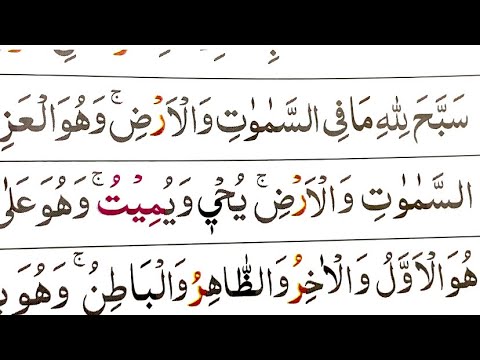 سَبَّحَ لِلّٰهِ مَا فِى السَّمٰوٰتِ وَالْاَرْضِ ۚ وَهُوَ الْعَزِ
السَّمٰوٰتِ وَالْاَرْضِ ۚ يُحْيٖ وَيُمِيْتُ ۚ وَهُوَ عَلٰى
هُوَ الْاَوَّلُ وَالْاٰخِرُ وَالظَّاهِرُ وَالْبَاطِنُ ۚ وَهُوَ بِ